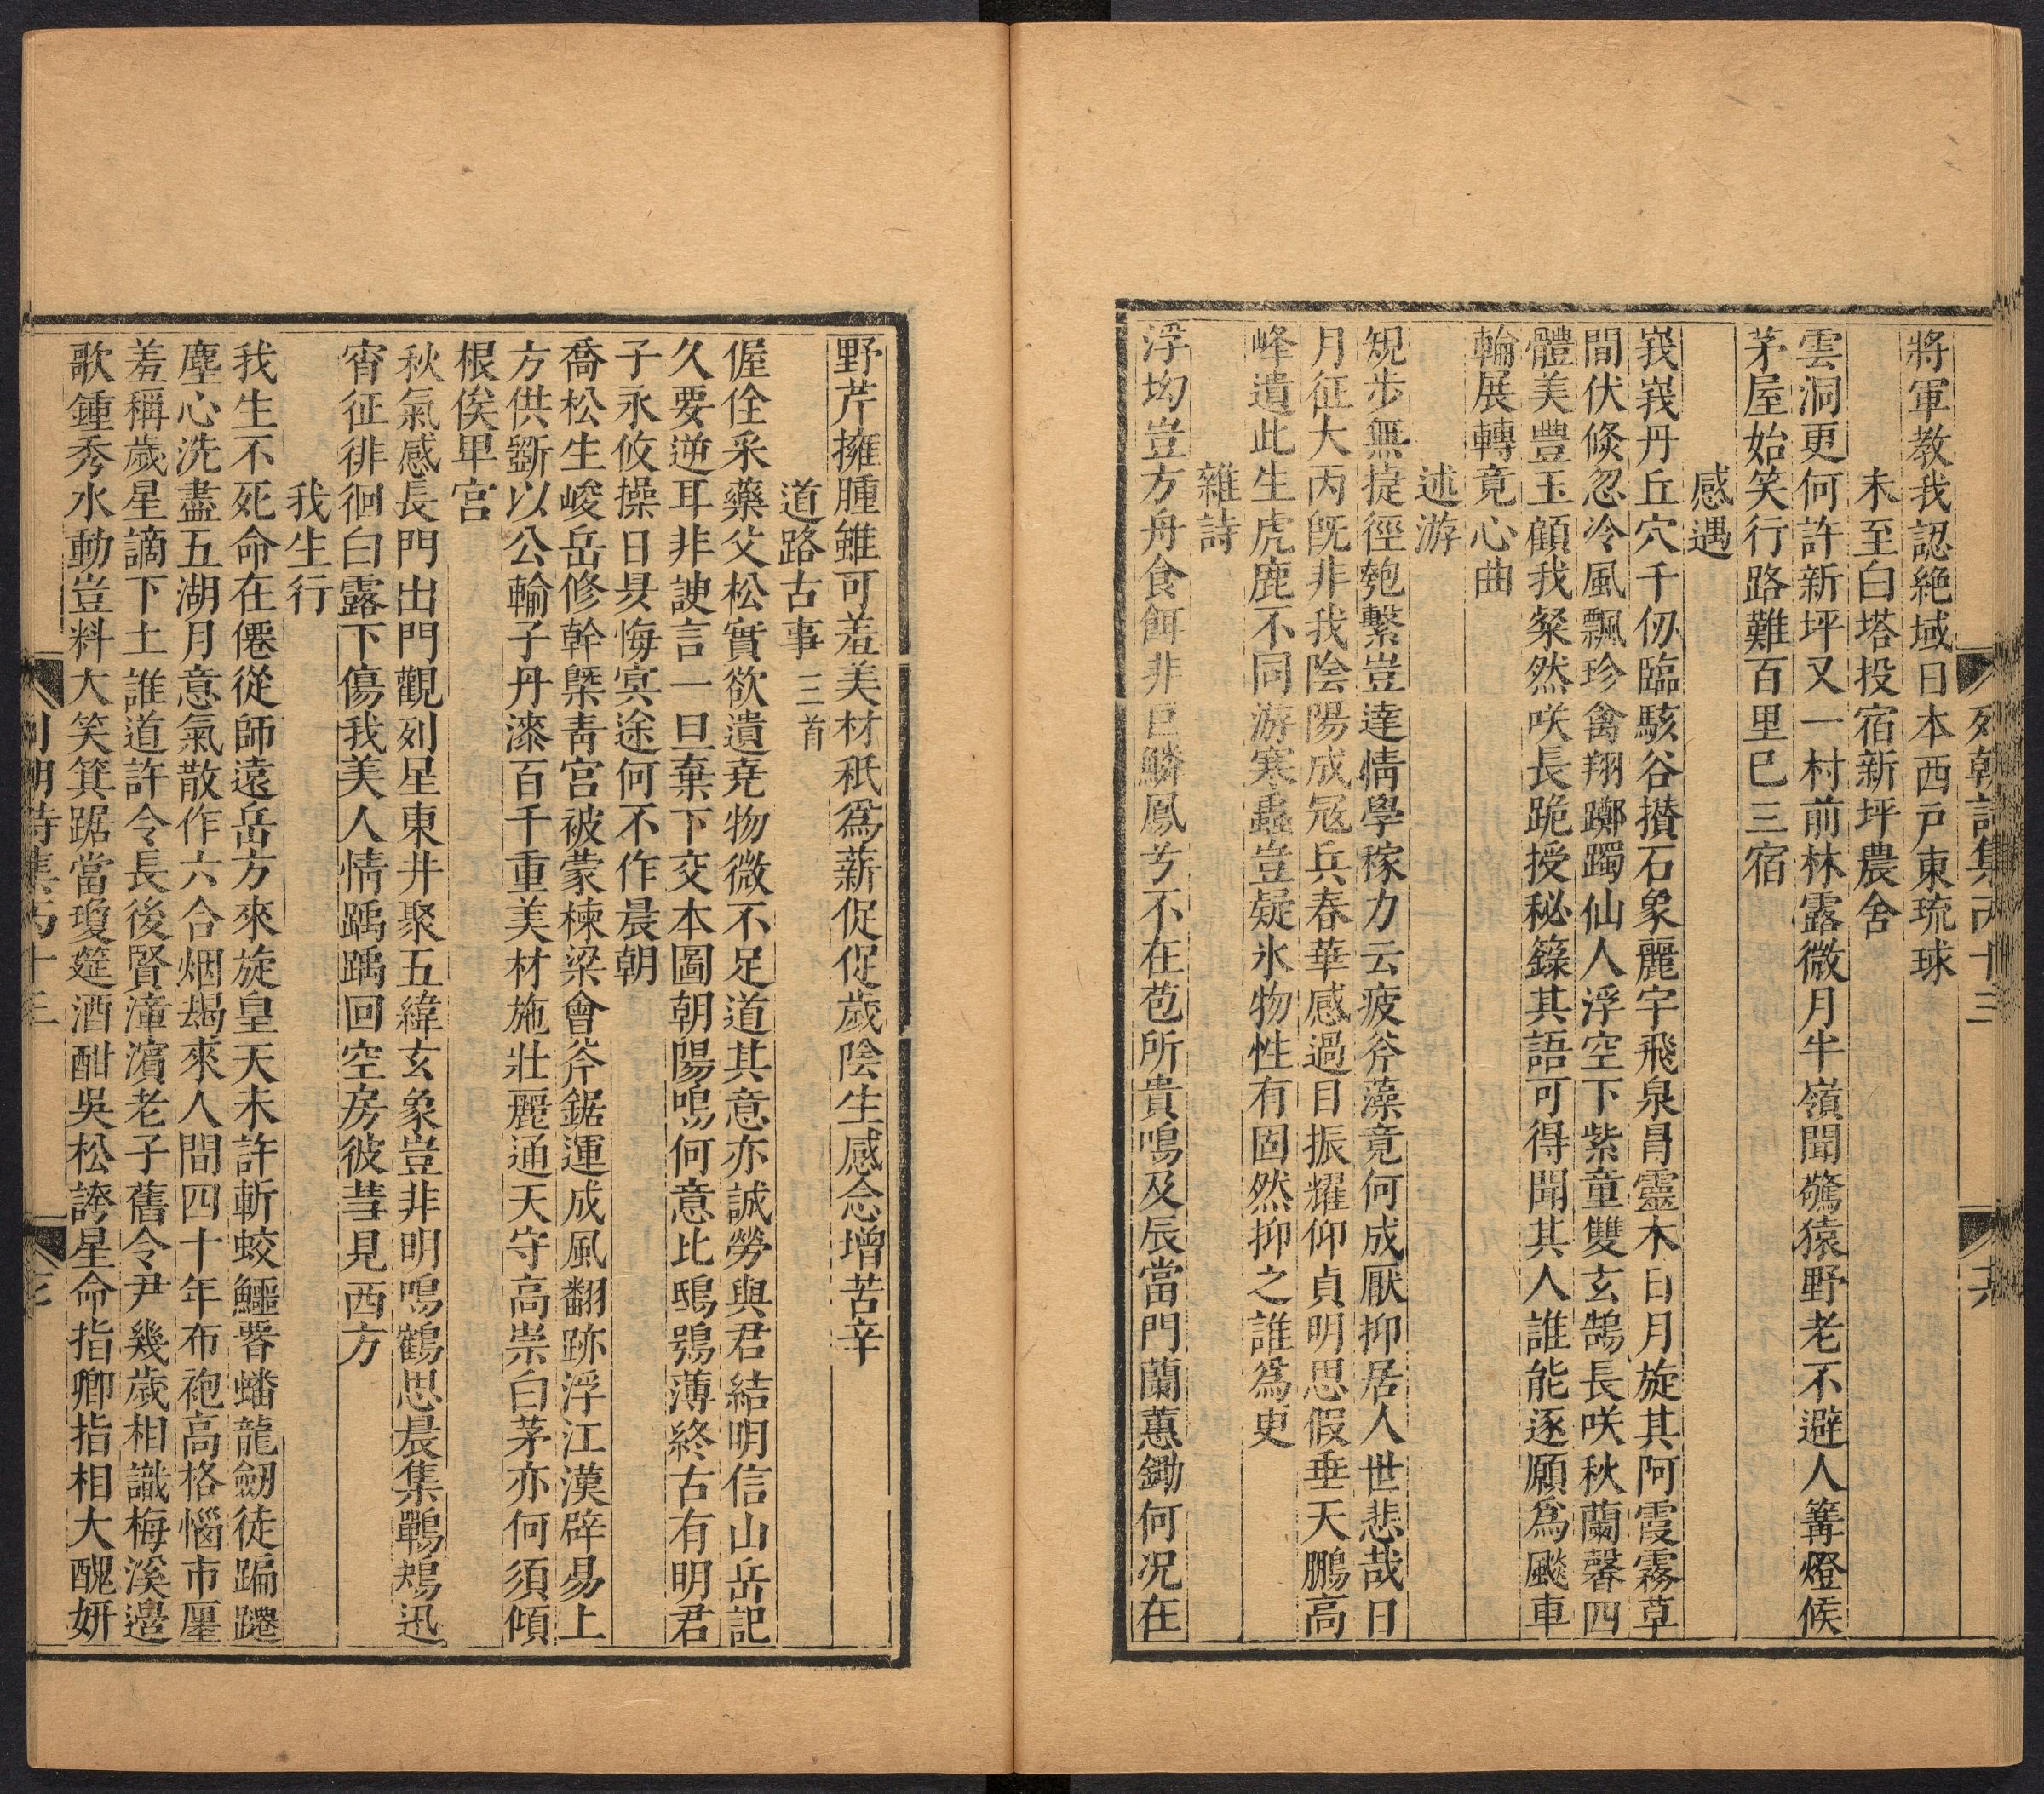 列朝詩集丙十三
將軍教我認絶域日本西戸東琉球
未至白塔投宿新坪農舍
雲洞更何許新坪又一村前林露微月半嶺聞驚猿野老不避人篝燈候
茅屋始笑行路難百里巳三宿
感遇
峩峩丹丘穴千仞臨駭谷攅石象麗宇飛泉㫺靈木白月旋其阿霞霧草
間伏倐忽冷風飄珍禽翔躑躅仙人浮空下紫童雙玄鵠長咲秋蘭馨四
體美豐玉顧我粲然咲長跪授秘籙其語可得聞其人誰能逐願爲飈車
輪展轉竟心曲
述游
䂓步無捷徑匏繫豈達情學稼力云疲斧藻竟何成厭抑居人世悲哉日
月征大丙旣非我陰陽成冦兵春華感過目振耀仰貞明思假垂天鵬高
峰遺此生虎鹿不同游寒蟲豈疑氷物性有固然抑之誰爲更
雜詩
浮㘭豈方舟食餌非巨鱗鳳兮不在苞所貴鳴及辰當門蘭蕙鋤何况在
野芹擁腫雖可羞美材秖爲薪促促歲陰生感念增苦辛
道路古事三首
偓佺采藥父松實欲遺堯物微不足道其意亦誠勞與君結明信山岳記
久要逆耳非諛言一旦棄下交本圖朝陽鳴何意比鴟鴞薄終古有明君
子永攸操日㫷悔㝠途何不作晨朝
喬松生峻岳修幹槩靑宮被蒙棟梁會斧鋸運成風翻跡浮江漢辟易上
方供斵以公輸子丹漆百千重美材施壯麗通天守高崇白茅亦何須傾
根俟甲宮
秋氣感長門出門觀列星東井聚五緯玄象豈非明鳴鶴思晨集鸇鴆迅
宵征徘徊白露下傷我美人情踽踽回空房彼彗見西方
我生行
我生不死命在僊從師遠岳方來旋皇天未許斬蛟鱷罾蟠龍劒徒蹁躚
塵心洗盡五湖月意氣散作六合烟朅來人間四十年布袍高格惱市㕓
羞稱歲星謫下土誰道許令長後賢潼濱老子舊令尹幾歲相識梅溪邉
歌鍾秀水動豈料大笑箕踞當瓊筵酒酣吳松誇星命指卿指相大醜妍